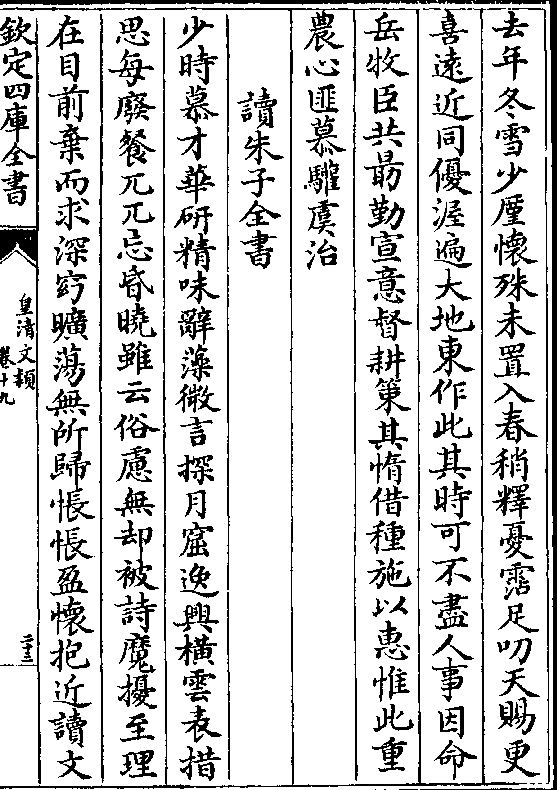 去年冬雪少廑懷殊未置入春稍釋憂霑足叨天賜更
喜遠近同優渥遍大地東作此其時可不盡人事因命
岳牧臣共勗勤宣意督耕策其惰借種施以惠惟此重
農心匪慕騶虞治
讀朱子全書
少時慕才華研精味辭藻微言探月窟逸興橫雲表措
思每廢餐兀兀忘昏曉雖云俗慮無却被詩魔擾至理
在目前棄而求深窈曠蕩無所歸悵悵盈懷抱近讀文
欽定四庫全書
皇清文穎
卷十九
二十三